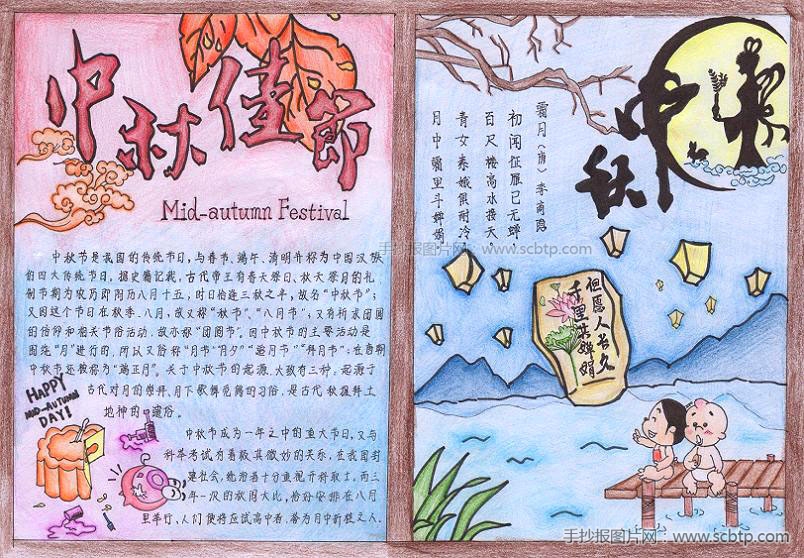 中秋佳節
Mid-autumn Festival
中秋节是我国的传统节日,与春节、端午、清明并称为中国汉族
的四大传统节日,据史籍记载,古代帝王有春天祭日、秋天祭月的礼
制节期为农历即阴历八月十五,时日恰逢三秋之半,故名“中秋节”;
又因这个节日在秋季、八月,故又称“秋节”、“八月节”;又有祈求团圆
的信仰和相关节俗活动,故亦称“团圆节”。因中秋节的主要活动是
围绕“月”进行的,所以又俗称“月节”“月夕”“追月节”“拜月节”;在唐朝
中秋节还被称为“端正月”。关于中秋节的起源,大致有三种,起源于
古代对月的崇拜、月下歌舞觅偶的习俗,是古代秋报拜土
地神的遗俗。
HAPPY
MID-AUTUMN
DAY!
中秋节成为一年之中的重大节日,又与
科举考试有着极其微妙的关系。在我国封
建社会,统治者十分重视开科取士,而三
年一次的秋闱大比,恰好安排在八月
里举行,人们便将应试高中者,誉为月中折桂之人。
中秋
霜月(唐)李商隐
初闻征雁已无蝉
百尺楼高水接天,
青女素娥俱耐冷,
月中霜里斗婵娟
但愿人长久
千里共婵娟
手抄报图片网:www.scbtp.com
手抄报图片网:www.scbtp.com